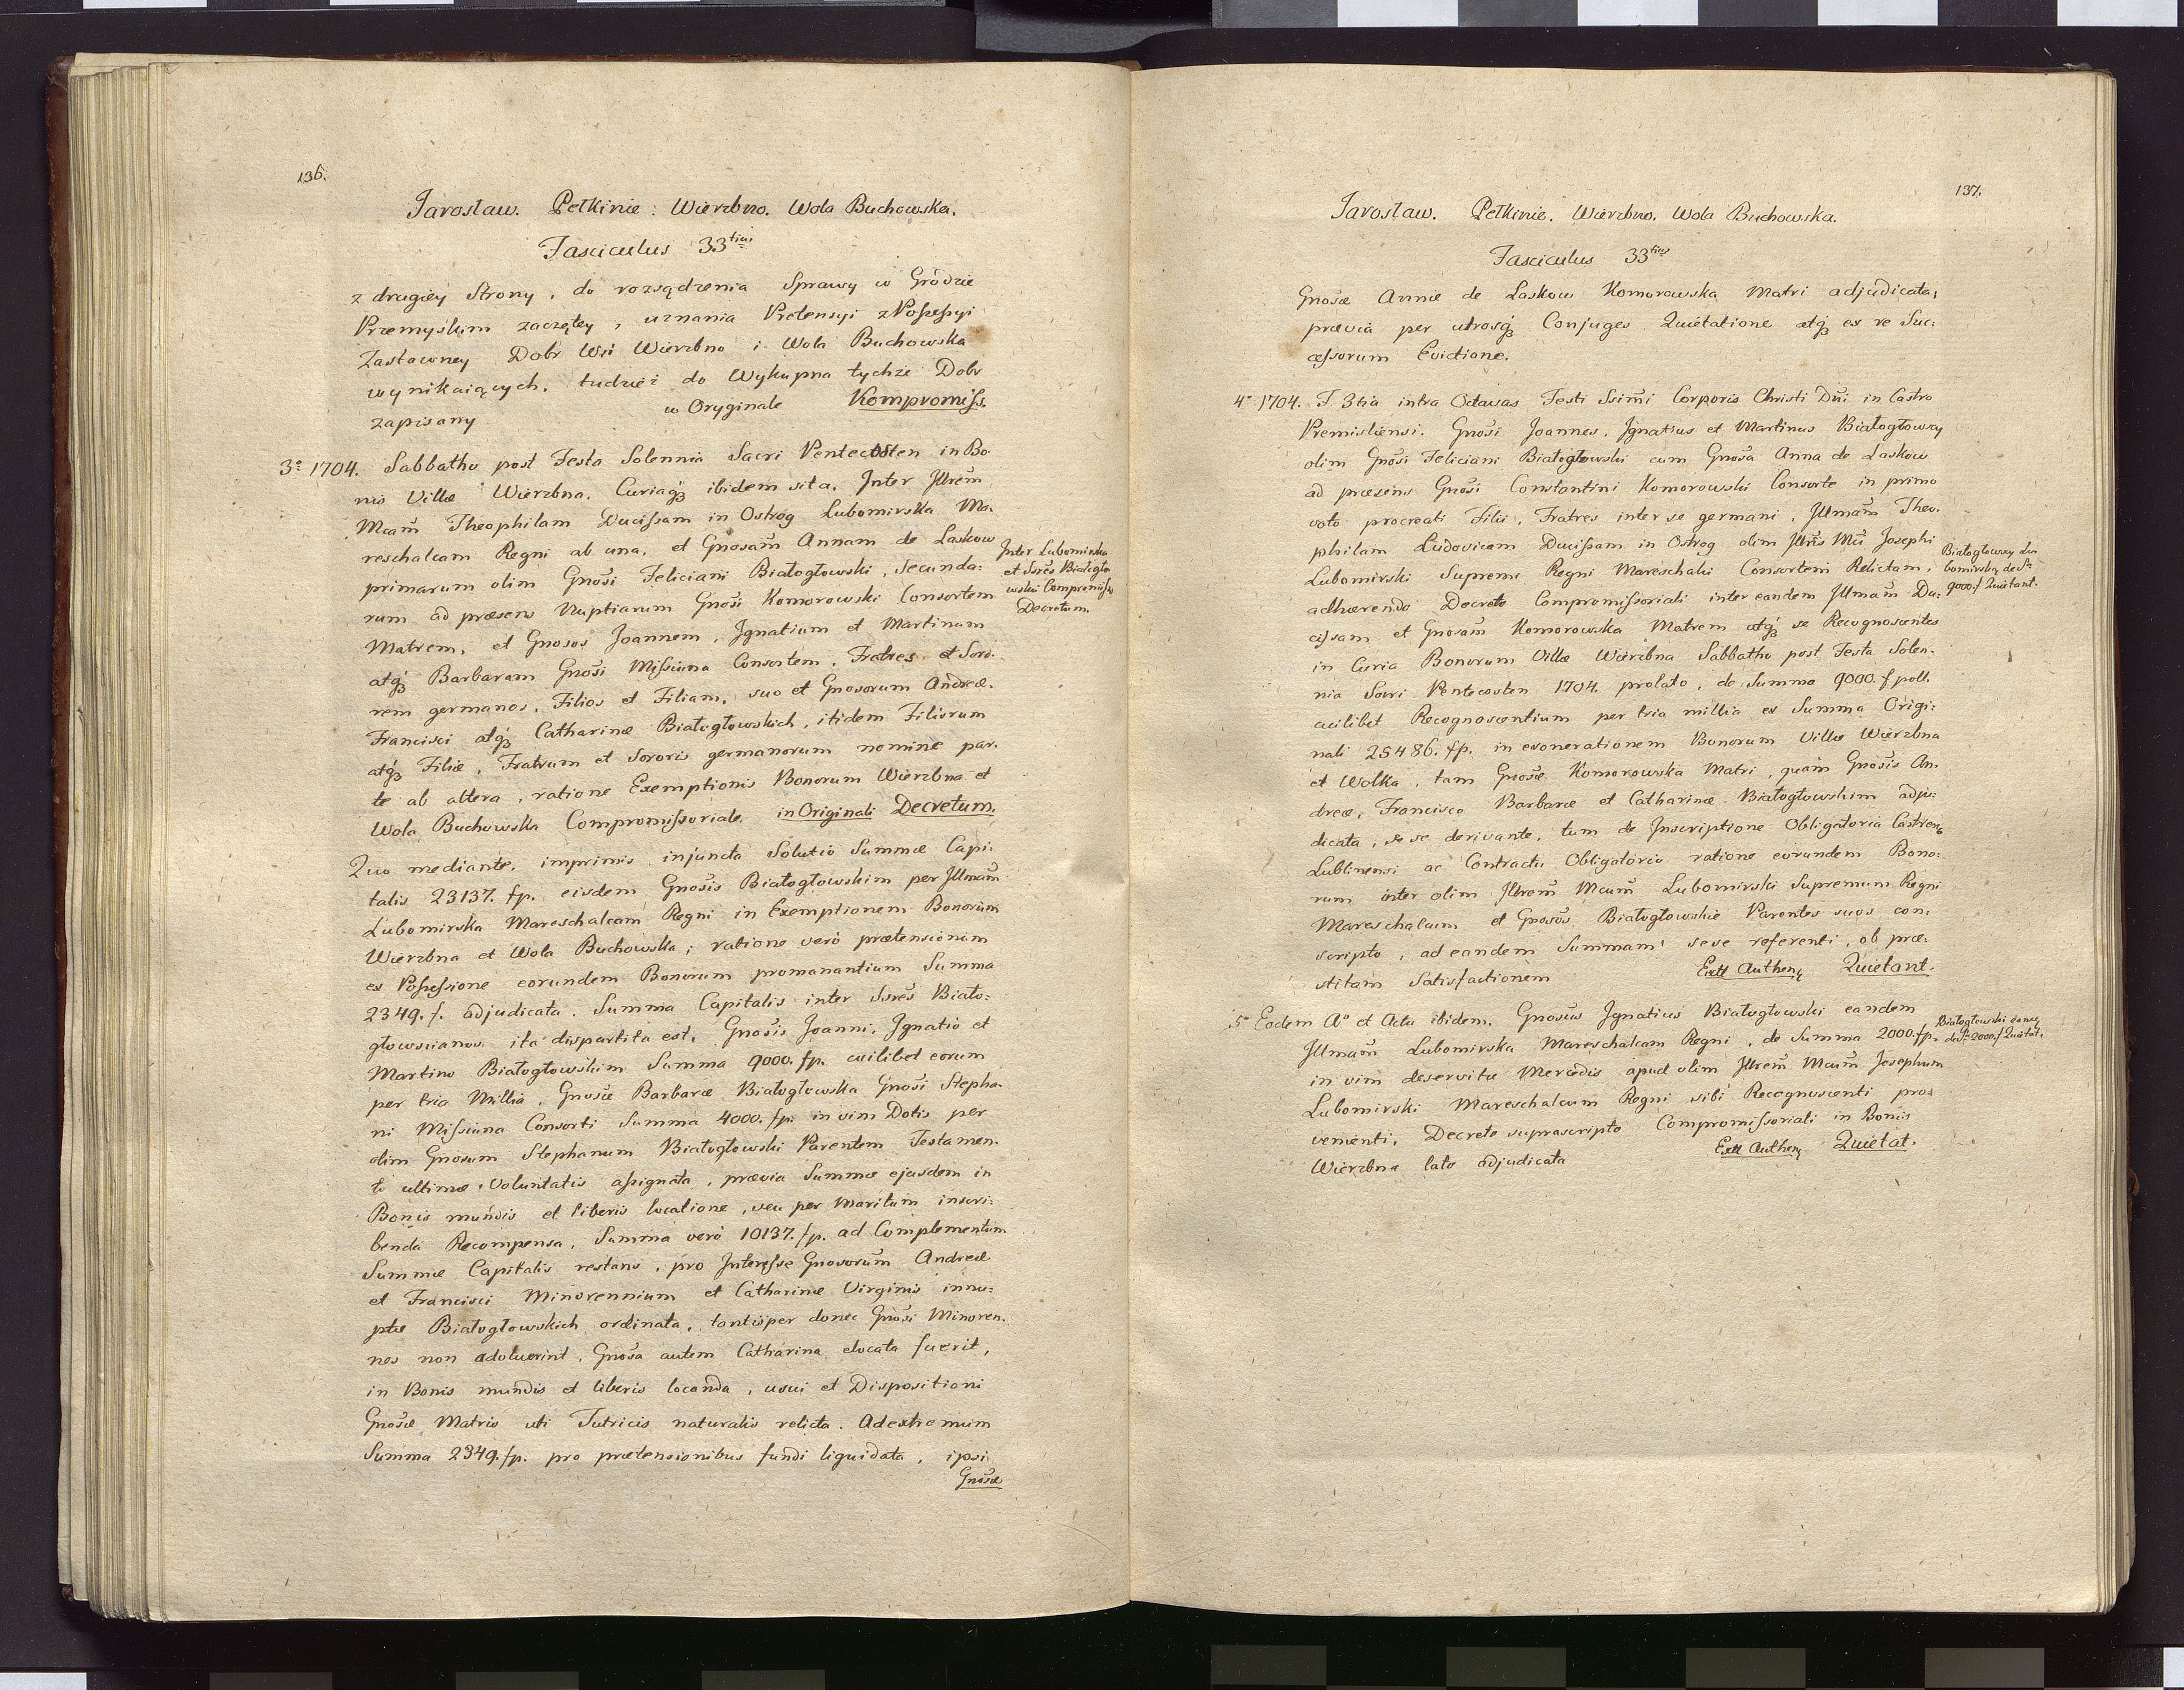 136.
Jarosław. Pełkinie. Wierzbno. Wola Buchowska.
Fasciculus 33tius
z drugiey Strony, do rozsądzenia Sprawy w Gródzie
Przemyskim zaczętey, uznania Pretensyi z Possessyi
Zastawney Dobr Wsi Wierzbno i Wola Buchowska
wynikaiących, tudzież do Wykupna tychże Dobr
zapisany w Oryginale Kompromiss.
3o 1704. Sabbatho post Festa Solennia Sacri Pentecosten in Bo
nis Villæ Wierzbna, Curiaq3 ibidem sita. Inter Jllrem
Mcam Theophilam Ducissam in Ostrog Lubomirska Ma-
reschalcam Regni ab una, et Gnosam Annam de Laskow
primarum olim Gnosi Feliciani Białogłowski, secunda:
rum ad præsens Nuptiarum Gnosi Komorowski Consortem
Matrem, et Gnosos Joannem, Ignatium et Martinum
atq3 Barbaram Gnosi Missiuna Consortem, Fratres et Soro-
rem germanos, Filios et Filiam, suo et Gnosorum Andreæ,
Francisci atq3 Catharinæ Białogłowskich, itidem Filiorum
atq3 Filiæ, Fratrum et Sororis germanorum nomine par-
te ab altera, ratione Exemptionis Bonorum Wierzbna et
Wola Buchowska Compromissoriale. in Originali Decretum.
Inter Lubomirska
et Ssres Białogło
wski Compromiss
Decretum.
Quo mediante, imprimis injuncta Solutio Summæ Capi:
talis 23137. fp. eisdem Gnosis Białogłowskim per Jllmam
Lubomirska Mareschalcam Regni in Exemptionem Bonorum
Wierzbna et Wola Buchowska; ratione verò prætensionum
ex Possessione eorundem Bonorum promanantium Summa
2349. f. adjudicata. Summa Capitalis inter Ssres Biało:
głowscianos ita dispartita est. Gnosis Joanni, Ignatio et
Martino Białogłowskim Summa 9000. fp. cuilibet eorum
per tria Millia, Gnosæ Barbaræ Białogłowska Gnosi Stepha-
ni Missiuna Consorti Summa 4000. fp. in vim Dotis per
olim Gnosum Stephanum Białogłowski Parentem Testamen-
to ultimæ Voluntatis assignata, prævia Summæ ejusdem in
Bonis mundis et liberis locatione, seu per Maritum inscri:
benda Recompensa, Summa verò 10137. fp. ad Complementum
Summæ Capitalis restans, pro Interesse Gnosorum Andreæ
et Francisci Minorennium et Catharinæ Virginis innu:
ptæ Białogłowskich ordinata, tantisper donec Gnosi Minoren-
nes non adoluerint, Gnosa autem Catharina elocata fuerit,
in Bonis mundis et liberis locanda, usui et Dispositioni
Gnosæ Matris uti Tutricis naturalis relicta. Ad extremum
Summa 2349. fp. pro prætensionibus fundi liquidata, ipsi
Gnosæ
137.
Jarosław. Pełkinie. Wierzbno. Wola Buchowska.
Fasciculus 33tius
Gnosæ Annæ de Laskow Komorowska Matri adjudicata,
prævia per utrosq3 Conjuges Quietatione atq3 ex re Suc:
cessorum Evictione.
4o 1704. F. 3tia intra Octavas Festi Ssimi Corporis Christi Dni in Castro
Premisliensi. Gnosi Joannes, Ignatius et Martinus Białogłowscy
olim Gnosi Feliciani Białogłowski cum Gnosa Anna de Laskow
ad præsens Gnosi Constantini Komorowski Consorte in primo
voto procreati Filii, Fratres inter se germani, Jllmam Theo-
philam Ludovicam Ducissam in Ostrog olim Jllris Mci Josephi
Lubomirski Supremi Regni Mareschalci Consortem Relictam,
adhærendo Decreto Compromissoriali inter eandem Jllmam Du:
cissam et Gnosam Komorowska Matrem atq3 se Recognoscentes
in Curia Bonorum Villæ Wierzbna Sabbatho post Festa Solen-
nia Sacri Pentecosten 1704. prolato, de Summa 9000. f poll.
cuilibet Recognoscentium per tria millia ex Summa Origi:
nali 25486. fp. in exonerationem Bonorum Villæ Wierzbna
et Wolka, tam Gnosæ Komorowska Matri, quam Gnosis An-
dreæ, Francisco Barbaræ et Catharinæ Białogłowskim adju:
dicata, ex se derivante, tum de Inscriptione Obligatoria Castren
Lublinensi ac Contractu Obligatorio ratione eorundem Bono:
rum inter olim Jllrem Mcum Lubomirski Supremum Regni
Mareschalcum et Gnosos Białogłowskie Parentes suos con:
scripto, ad eandem Summam sese referenti, ob præ:
stitam Satisfactionem Extt Authen Quietant.
Białogłowscy Lu
bomirską de Sa
9000. f Quietant.
5o Eodem Ao et Actu ibidem. Gnosus Ignatius Białogłowski eandem
Jllmam Lubomirska Mareschalcam Regni, de Summa 2000. fp.
in vim deservitæ Mercedis apud olim Jllrem Mcum Josephum
Lubomirski Mareschalcum Regni sibi Recognoscenti pro:
venienti, Decreto suprascripto Compromissoriali in Bonis
Wierzbna lato adjudicata Extt Authen Quietat.
Białogłowski eand
de Sa 2000. f Quietat.